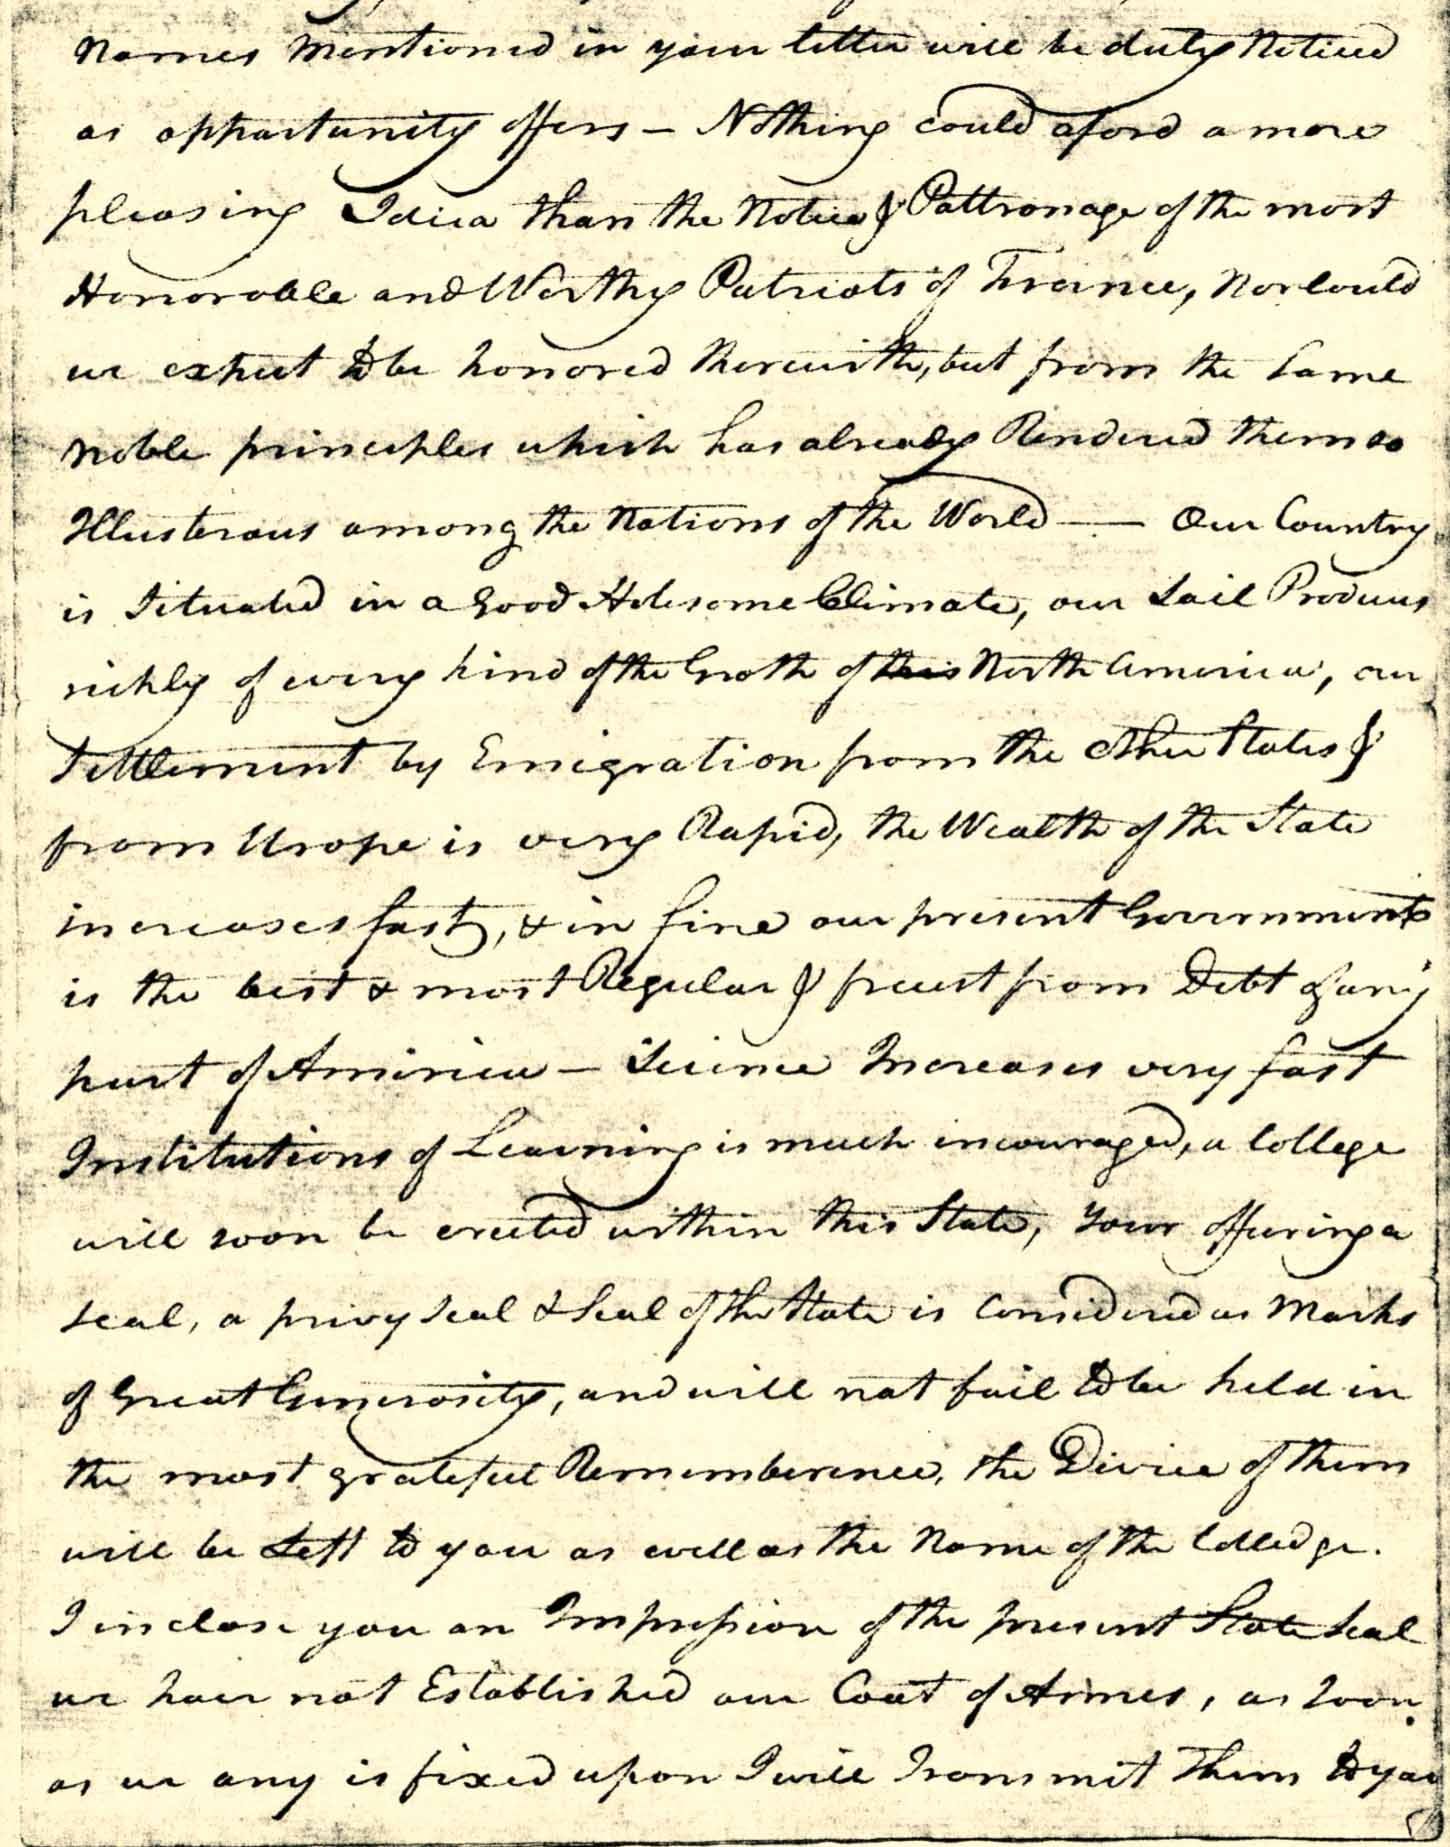 Names Mentioned in your letter will be duly Noticed
as oppartunity offers — Nothing could aford a more
pleasing Idiea than the Notice & Pattronage of the most
Honorable and Worthy Patriots of France, Nor Could
we expect to be honored therewith, but from the Same
Noble principles which has already Rendered them so
Illusterous among the Nations of the World —— Our Country
is Situated in a Good Holesome Climate, our Soil Produces
richly of every kind of the Groth of this North America, our
Settlement by Emigration from the other States &
from Urope is very Rapid, the Wealth of the State
increases fast, & in fine our present Government
is the best & most Regular & freest from Debt of any
part of America — Science Increases very fast
Institutions of Learning is much incouraged, a College
will soon be erected within this State, Your offering a
Seal, a privy Seal & Seal of the State is Considered as Marks
of Great Generosity, and will not fail to be held in
the most grateful Rememberence, the Divice of them
will be Left to you as well as the Name of the Colledge.
I inclose you an Impression of the present State Seal
we have not Established our Coat of Armes, as Soon
as we any is fixed upon I will Transmit Them to you